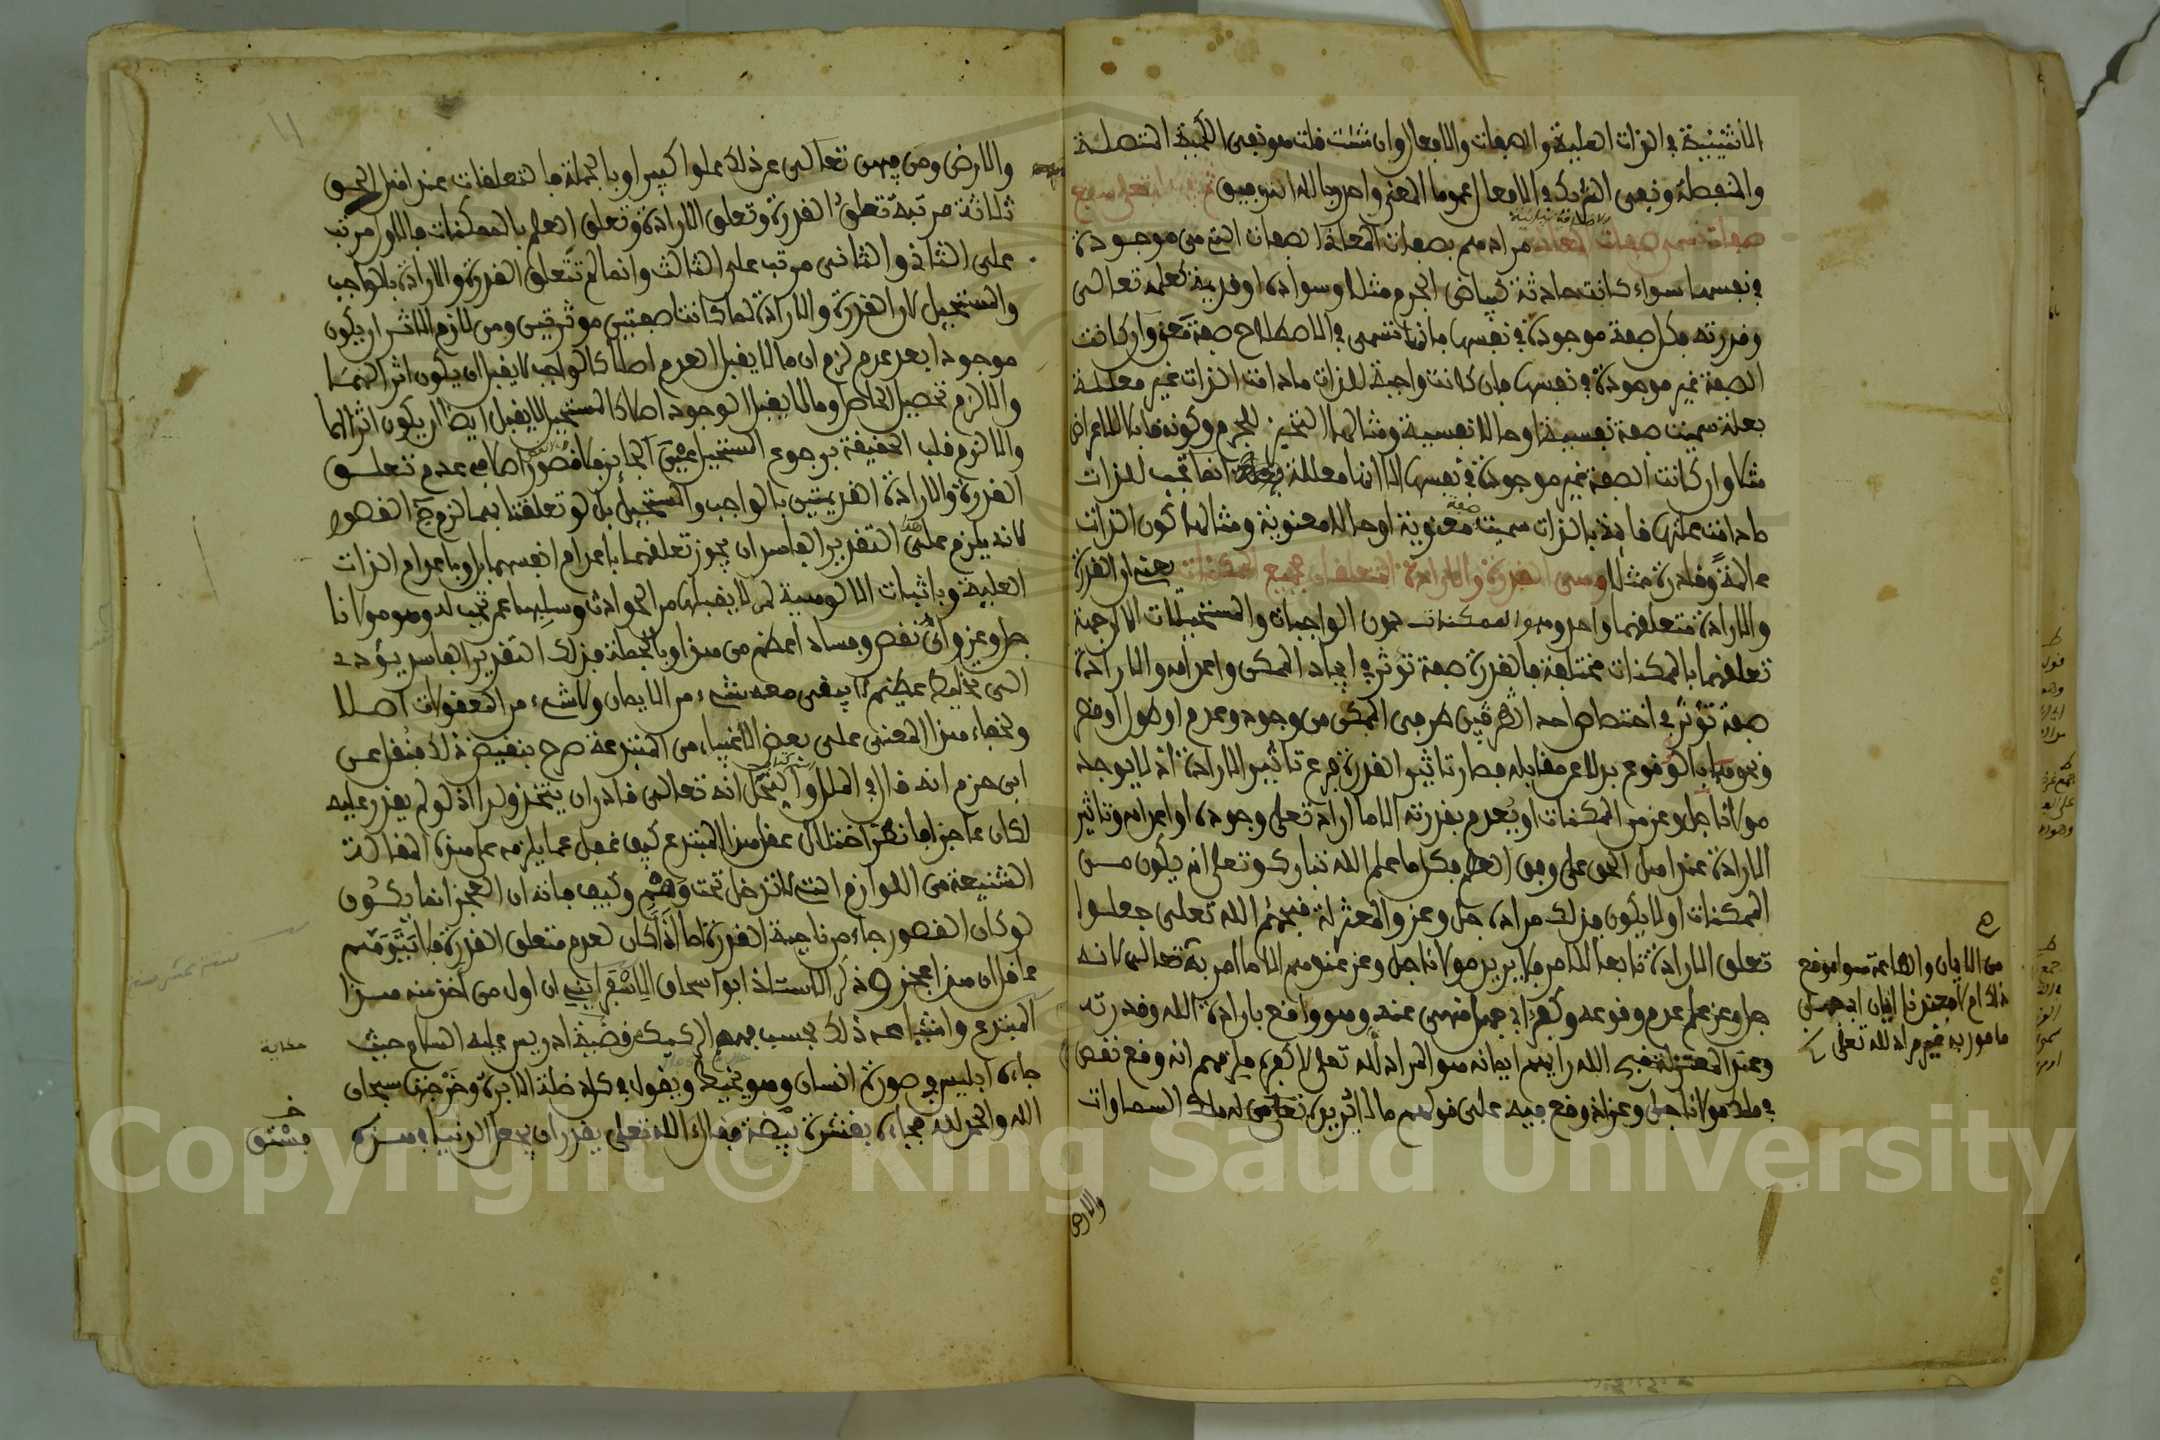 الاثنينية في الذات العلية والصفات والافعال وان شئت قلت هو نفي الكمية المتصلة
والمنفصلة ونفي الشريك في الافعال عموما المعنى واحد وبالله التوفيق ثم يجب له تعلى سبع
صفات تسمى صفات المعاني مرادهم بصفات المعاني الصفات التي هي موجودة
في نفسها سواء كانت حادثة كبياض الجرم مثلا وسواده او قديمة كعلمه تعالى
وقدرته فكل صفة موجودة في نفسها فانها تسمى في الاصطلاح صفة معنى وان كانت
الصفة غير موجودة في نفسها فان كانت واجبة للذات ما دامت الذات غير معللة
بعلة سميت صفة نفسية او حالا نفسية ومثالها التحيز للجرم وكونه قابلا للاعراض
مثلا وان كانت الصفة غير موجودة في نفسها الا انها معللة انما تجب للذات
ما دامت علتها قائمة بالذات سميت صفة معنوية او حالا معنوية ومثالها كون الذات
عالمة وقادرة مثلا وهي القدرة والارادة المتعلقان بجميع الممكنات يعني ان القدرة
والارادة متعلقهما واحد وهو الممكنات دون الواجبات والمستحيلات الا ان جهة
تعلقهما بالممكنات مختلفة فالقدرة صفة تؤثر في ايجاد الممكن واعدامه والارادة
صفة تؤثر في اختصاص احد طرفي الممكن من وجود وعدم او طول او قصر
ونحوها بالوقوع بدلا عن مقابله فصار تاثير القدرة فرع تاثير الارادة اذ لا يوجد
مولانا جل وعز من الممكنات او يعدم بقدرته الا ما اراد تعلى وجوده او اعدامه وتاثير
الارادة عند اهل الحق على وفق العلم فكل ما علم الله تبارك وتعلى انه يكون من
الممكنات او لا يكون فذلك مراده جل وعز والمعتزلة قبحهم الله تعلى جعلوا
تعلق الارادة تابعا للامر فلا يريد مولانا جل وعز عندهم الا ما امر به تعالى لانه
جل وعز علم عدم وقوعه وكفر ابي جهل منهي عنه وهو واقع بارادة الله وقدرته
وعند المعتزلة قبح الله رايهم ايمانه هو المراد لله تعلى لا كفره فلزمهم انه وقع نقص
في ملك مولانا جل وعز اذ وقع فيه على قولهم ما لا يريده تعلى من له ملك السماوات
والارض
من الايمان والطاعة سوا وقع
ذلك ام لا فعندنا ايمان ابي جهل
مامور به غير مراد لله تعلى
والارض ومن فيهن تعالى عن ذلك علوا كبيرا وبالجملة فالتعلقات عند اهل الحق
ثلاثة مرتبة تعلق القدرة وتعلق الارادة وتعلق العلم بالممكنات فالاول مرتب
على الثاني والثاني مرتب على الثالث وانما لم تتعلق القدرة والارادة بالواجب
والمستحيل لان القدرة والارادة لما كانتا صفتين مؤثرتين ومن لازم الاثر ان يكون
موجودا بعد عدم لزم ان ما لا يقبل العدم اصلا كالواجب لا يقبل ان يكون اثرا لهما
والا لزم تحصيل الحاصل وما لا يقبل الوجود اصلا كالمستحيل لا يقبل ايضا ان يكون اثرا لهما
والا لزم قلب الحقيقة برجوع المستحيل عين الجائز فلا قصور اصلا في عدم تعلق
القدرة والارادة القديمتين بالواجب والمستحيل بل لو تعلقتا بهما لزم القصور
لانه يلزم على هذا التقدير الفاسد ان يجوز تعلقهما باعدام انفسهما بل وباعدام الذات
العلية وباثبات الالوهية لمن لا يقبلها من الحوادث وسلبها عمن تجب له وهو مولانا
جل وعز واي نقص وفساد اعظم من هذا وبالجملة فذلك التقدير الفاسد يؤدي
الى تخليط عظيم لا يبقى معه شيء من الايمان ولا شيء من المعقولات اصلا
ولخفاء هذا المعنى على بعض الاغبياء من المبتدعة صرح بنقيض ذلك فنقل عن
ابن حزم انه قال في الملل والنحل انه تعالى قادر ان يتخذ ولدا اذ لو لم يقدر عليه
لكان عاجزا فانظر اختلال عقل هذا المبتدع كيف غفل عما يلزمه على هذه المقالة
الشنيعة من اللوازم التي لا تدخل تحت وهم وكيف فاته ان العجز انما يكون
لو كان القصور جاء من ناحية القدرة اما اذا كان لعدم متعلق القدرة فلا يتوهم
عاقل ان هذا عجز وذكر الاستاذ ابو اسحاق الاسفرايني ان اول من اخذ منه هذا
المبتدع واشياعه ذلك بحسب فهمهم الركيك قضية ادريس عليه السلام حيث
جاءه ابليس في صورة انسان وهو يخيط ويقول في كل دخلة الابرة وخرجتها سبحان
الله والحمد لله فجاءه بقشرة بيضة فقال الله تعلى يقدر ان يجعل الدنيا في هذه
فستق